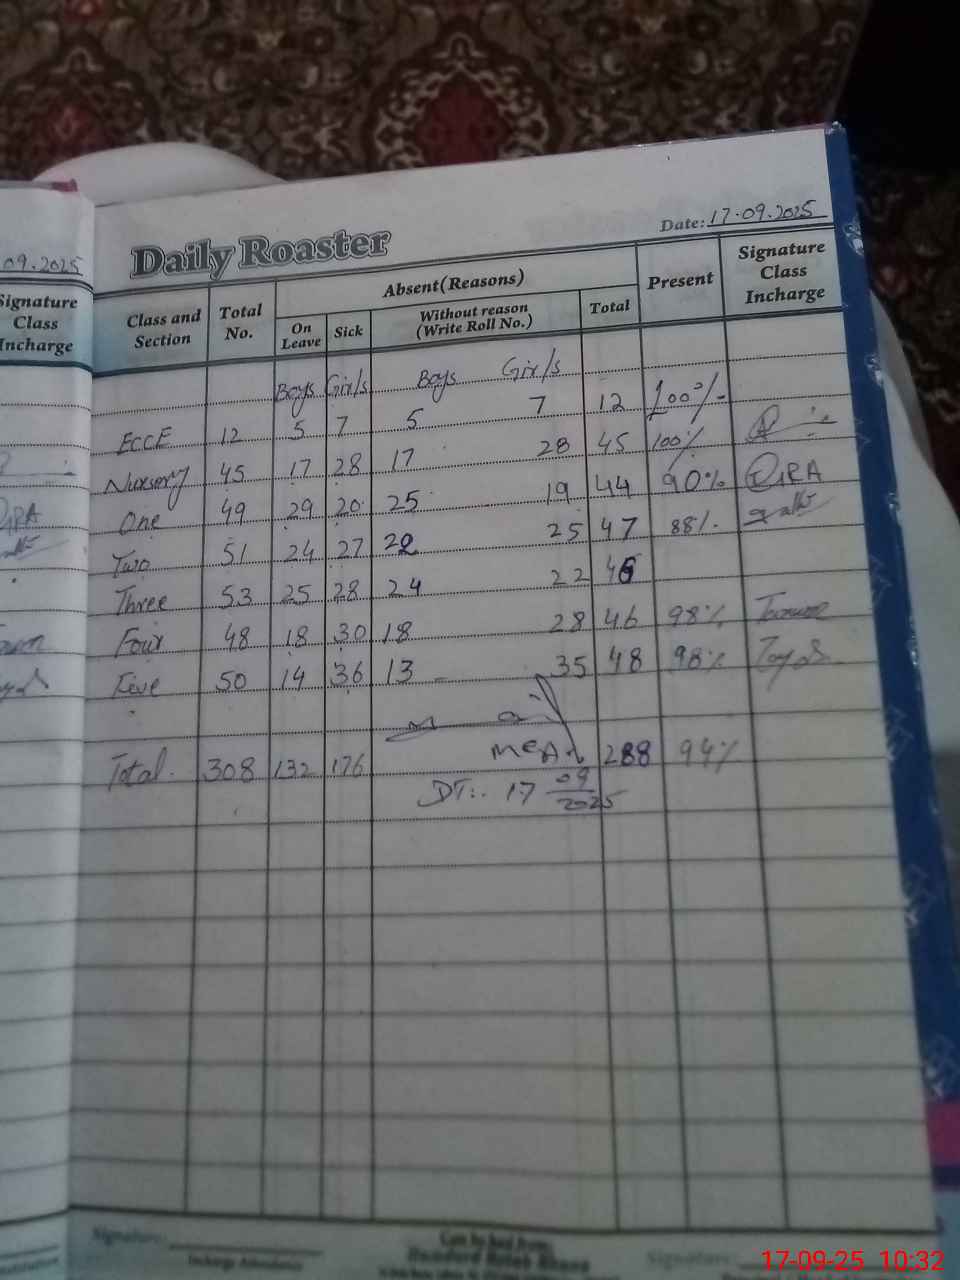 09.2025
Signature
Class
Incharge
Daily Roaster
Date: 17.09.2025
Class and Section
Total No.
Absent (Reasons)
On Leave
Sick
Without reason (Write Roll No.)
Total
Present
Signature Class Incharge
Boys Girls Boys Girls
ECCE 12 5 7 5 7 12 100%
Nursery 45 17 28 17 28 45 100%
One 49 29 20 25 19 44 90%
Two 51 24 27 22 25 47 88%
Three 53 25 28 24 22 46
Four 48 18 30 18 28 46 98%
Five 50 14 36 13 35 48 98%
MEA
Total 308 132 176 288 94%
DT:. 17 09 2025
Signature:
Incharge Attendance
Signature:
17-09-25 10:32